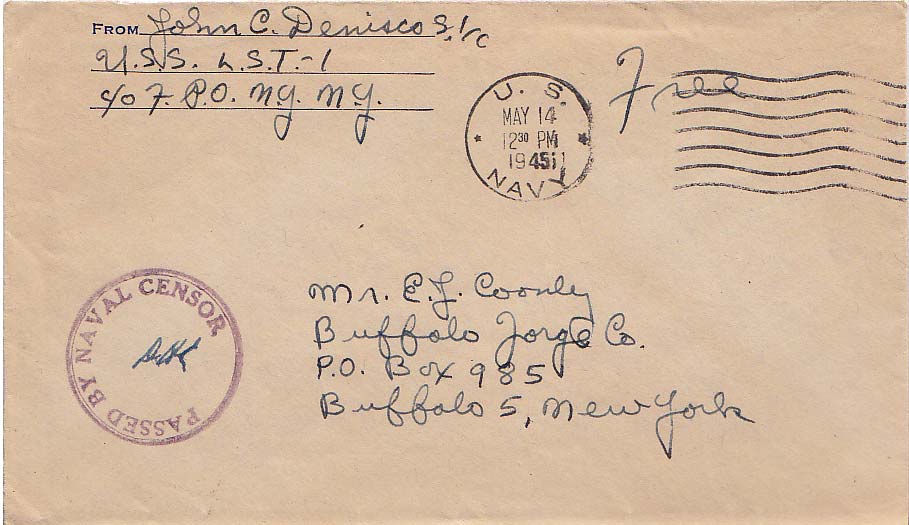 FROM John C. Denisco S.1/c
U.S.S. L.S.T.-1
c/o F.P.O. N.Y. N.Y.
U. S. NAVY
MAY 14
12 30 PM
1945
Free
PASSED BY NAVAL CENSOR
Mr. E.J. Coonly
Buffalo Forge Co.
P.O. Box 985
Buffalo 5, New York